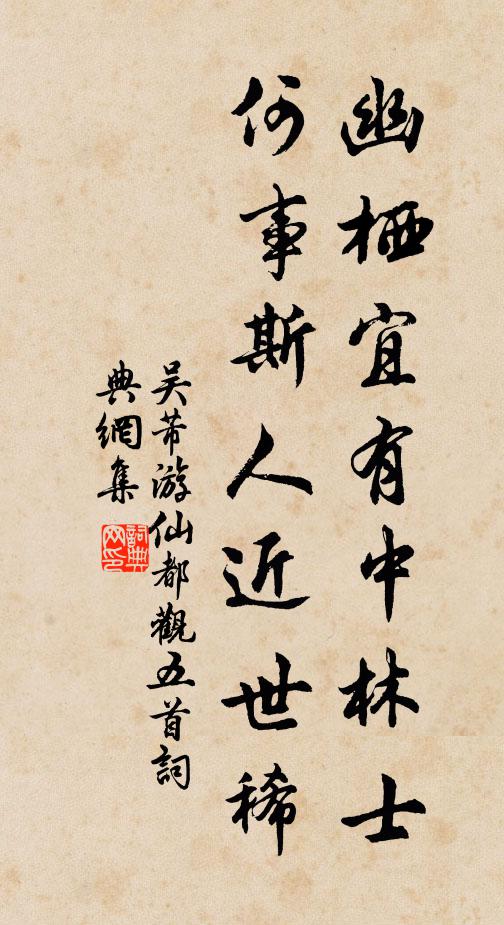 幽栖宜有中林士
何事斯人近世稀
吴芾游仙都觀五首詞
典網集
詞典網印